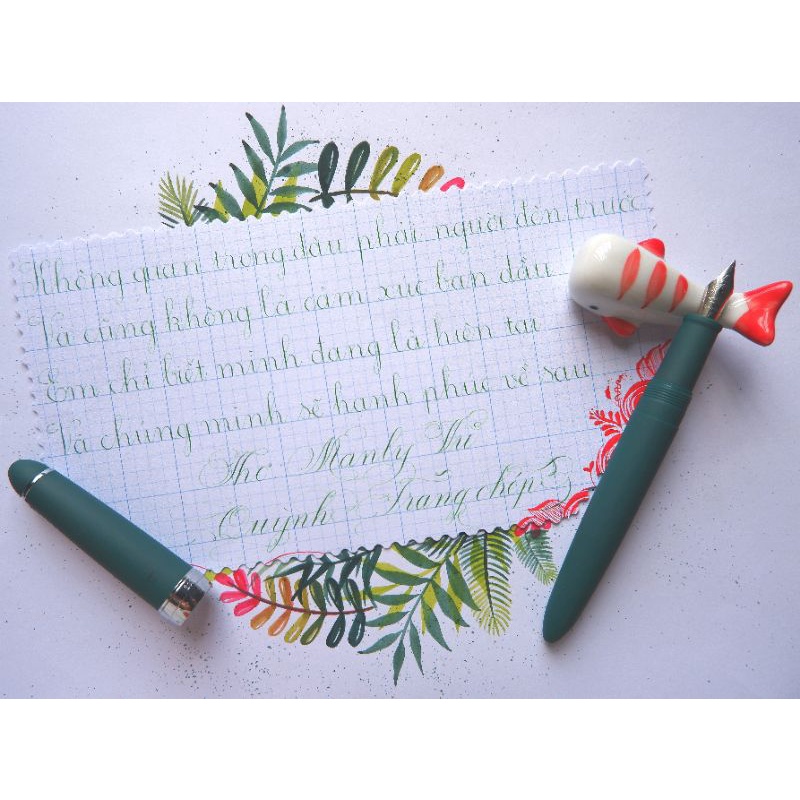 Không quan trọng đâu phải người đến trước
Và cũng không là cảm xúc ban đầu
Em chỉ biết mình đang là hiện tại
Và chúng mình sẽ hạnh phúc về sau
Thơ Manly Thi
Quỳnh Trang chép